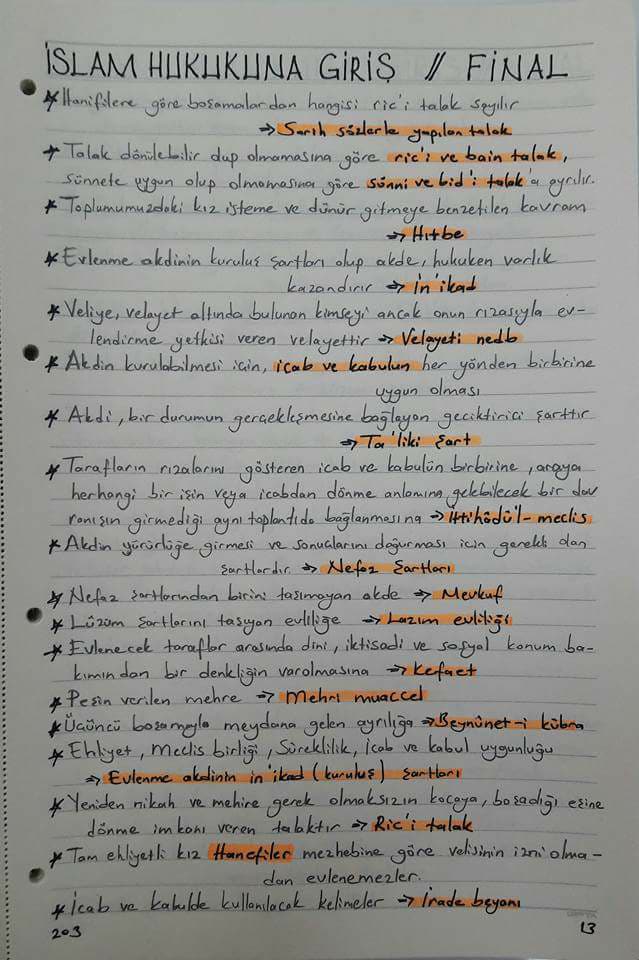 İSLAM HUKUKUNA GİRİŞ // FİNAL
* Hanifilere göre boşamalardan hangisi ric'i talak sayılır
→ Sarih sözlerle yapılan talak
* Talak dönülebilir olup olmamasına göre ric'i ve bain talak,
sünnete uygun olup olmamasına göre sünni ve bid'i talak'a ayrılır.
* Toplumumuzdaki kız isteme ve dünür gitmeye benzetilen kavram
→ Hıtbe
* Evlenme akdinin kuruluş şartları olup akde, hukuken varlık
kazandırır → İn'ikad
* Veliye, velayet altında bulunan kimseyi ancak onun rızasıyla ev-
lendirme yetkisi veren velayettir → Velayeti nedb
* Akdin kurulabilmesi için, icab ve kabulun her yönden birbirine
uygun olması
* Akdi, bir durumun gerçekleşmesine bağlayan geciktirici şarttır
→ Ta'liki şart
* Tarafların rızalarını gösteren icab ve kabulün birbirine, araya
herhangi bir işin veya icabdan dönme anlamına gelebilecek bir dav
ranışın girmediği aynı toplantıda bağlanmasına → İttihâdü'l-meclis
* Akdin yürürlüğe girmesi ve sonuçlarını doğurması için gerekli olan
şartlardır. → Nefaz şartları
* Nefaz şartlarından birini taşımayan akde → Mevkuf
* Lüzum şartlarını taşıyan evliliğe → Lazım evliliği
* Evlenecek taraflar arasında dini, iktisadi ve sosyal konum ba-
kımından bir denkliğin varolmasına → Kefaet
* Peşin verilen mehre → Mehri muaccel
* Üçüncü boşamayla meydana gelen ayrılığa → Beynûnet-i kübra
* Ehliyet, Meclis birliği, Süreklilik, İcab ve kabul uygunluğu
→ Evlenme akdinin in'ikad (kuruluş) şartları
* Yeniden nikah ve mehire gerek olmaksızın kocaya, boşadığı eşine
dönme imkanı veren talaktır → Ric'i talak
* Tam ehliyetli kız Hanefiler mezhebine göre velisinin izni olma-
dan evlenemezler.
* İcab ve kabulde kullanılacak kelimeler → İrade beyanı
203
13